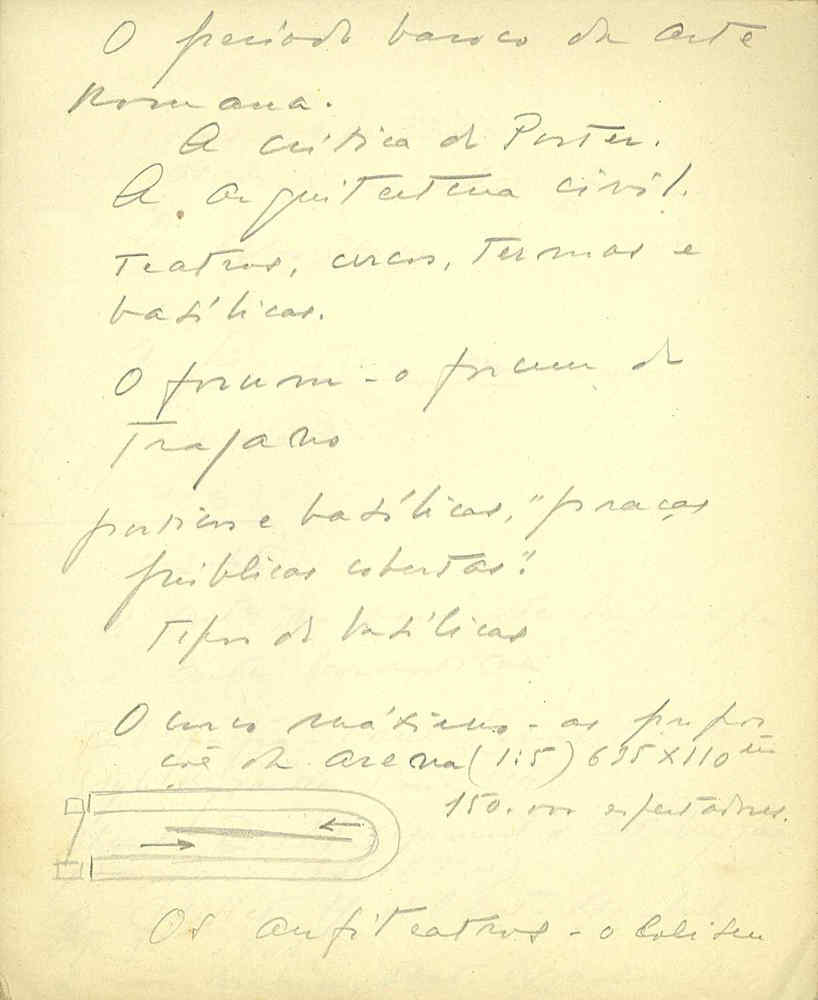 O periodo baroco da arte
Romana.
A critica de Porter.
A arquitectura civil.
Teatros, circos, Termas e
basílicas.
O forum - o forum de
Trajano
porticos e basílicas, "praças
públicas cobertas".
Tipos de basílicas
O circo máximo - as propor
çõe da arena (1:5) 635x110 
150.000 espectadores.
Os anfiteatros - o Coliseu